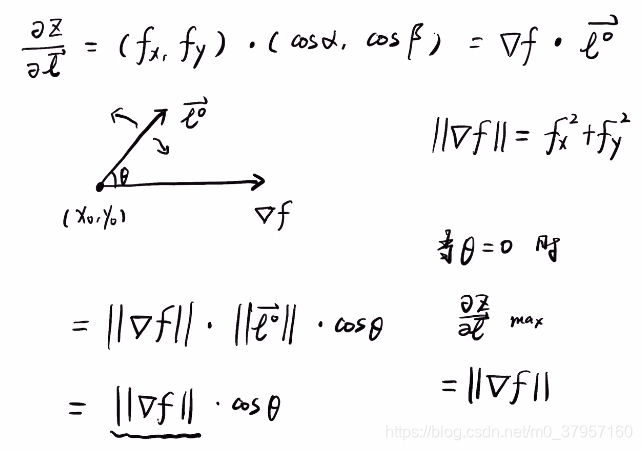 ∂z/∂l⃗ = (fx, fy) · (cosα, cosβ) = ∇f · l⃗⁰
l⃗⁰
||∇f|| = fx² + fy²
θ
(x₀, y₀)
∇f
当 θ = 0 时
= ||∇f|| · ||l⃗⁰|| · cosθ
∂z/∂l⃗ max
= ||∇f|| · cosθ
= ||∇f||
https://blog.csdn.net/m0_37957160